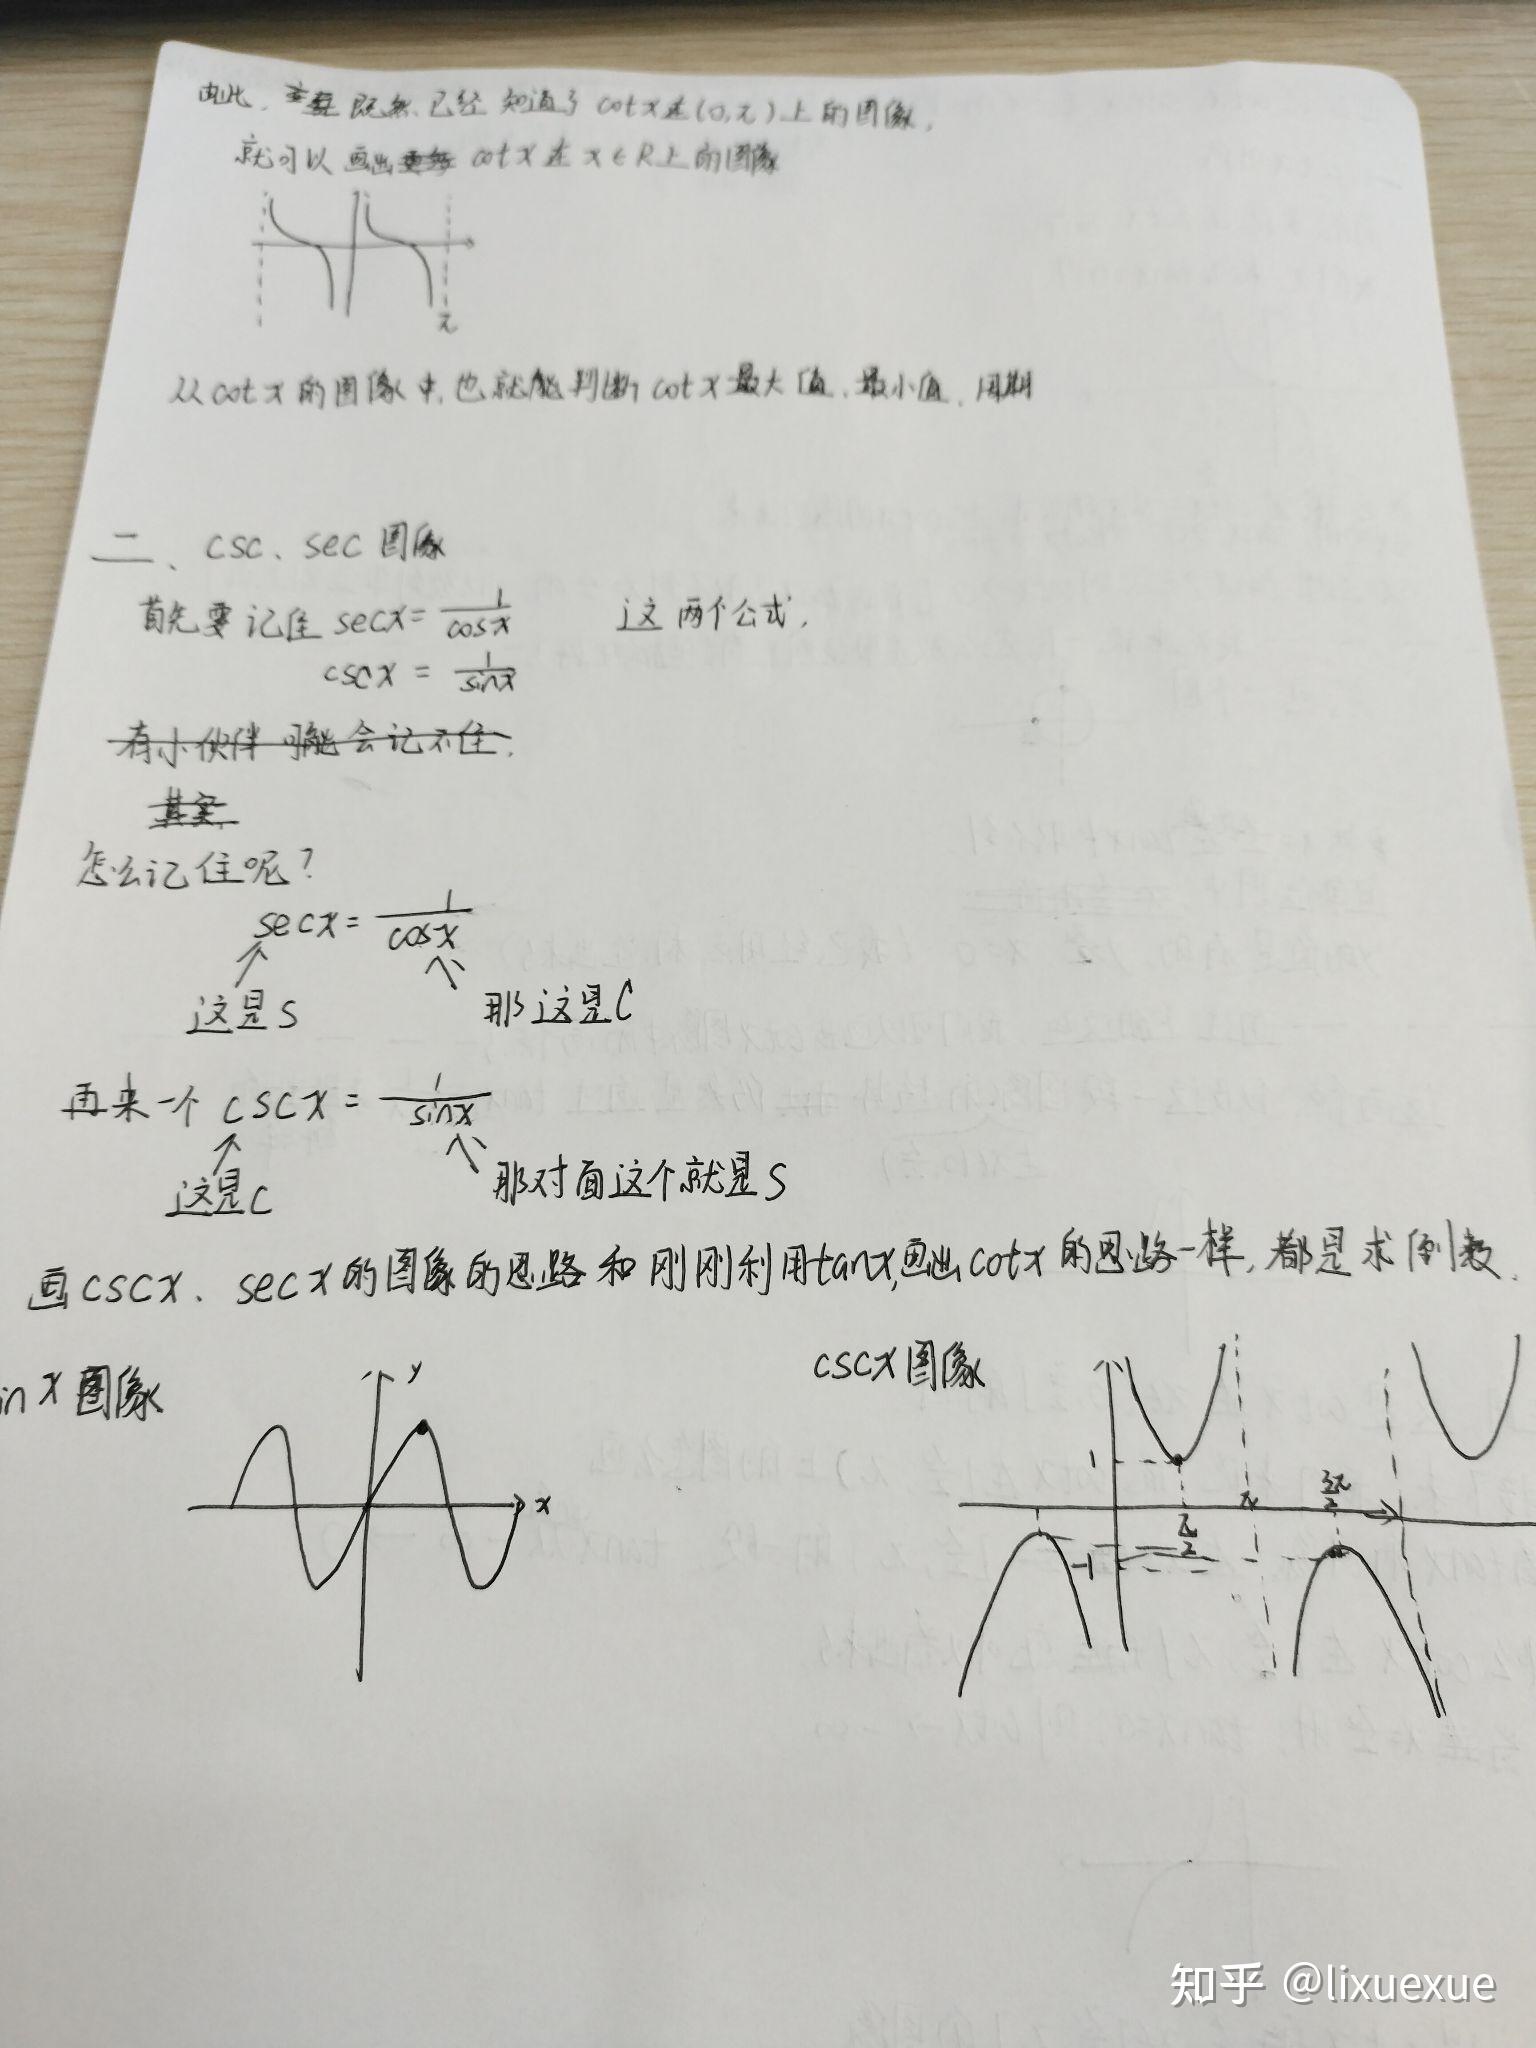 由此，既然已经知道了cotx在(0,π)上的图像，
就可以画出cotx在x∈R上的图像
π
从cotx的图像中，也就能判断cotx最大值、最小值、周期
二、csc、sec图像
首先要记住 secx=1/cosx 这两个公式，
cscx = 1/sinx
有小伙伴可能会记不住，
其实，
怎么记住呢？
secx=1/cosx
这是S 那这是C
再来一个 cscx = 1/sinx
这是C 那对面这个就是S
画cscx、secx的图像的思路和刚刚利用tanx,画出cotx的思路一样，都是求倒数，
inx图像
y
x
cscx图像
1
π
3π/2
π/2
-1
知乎 @lixuexue